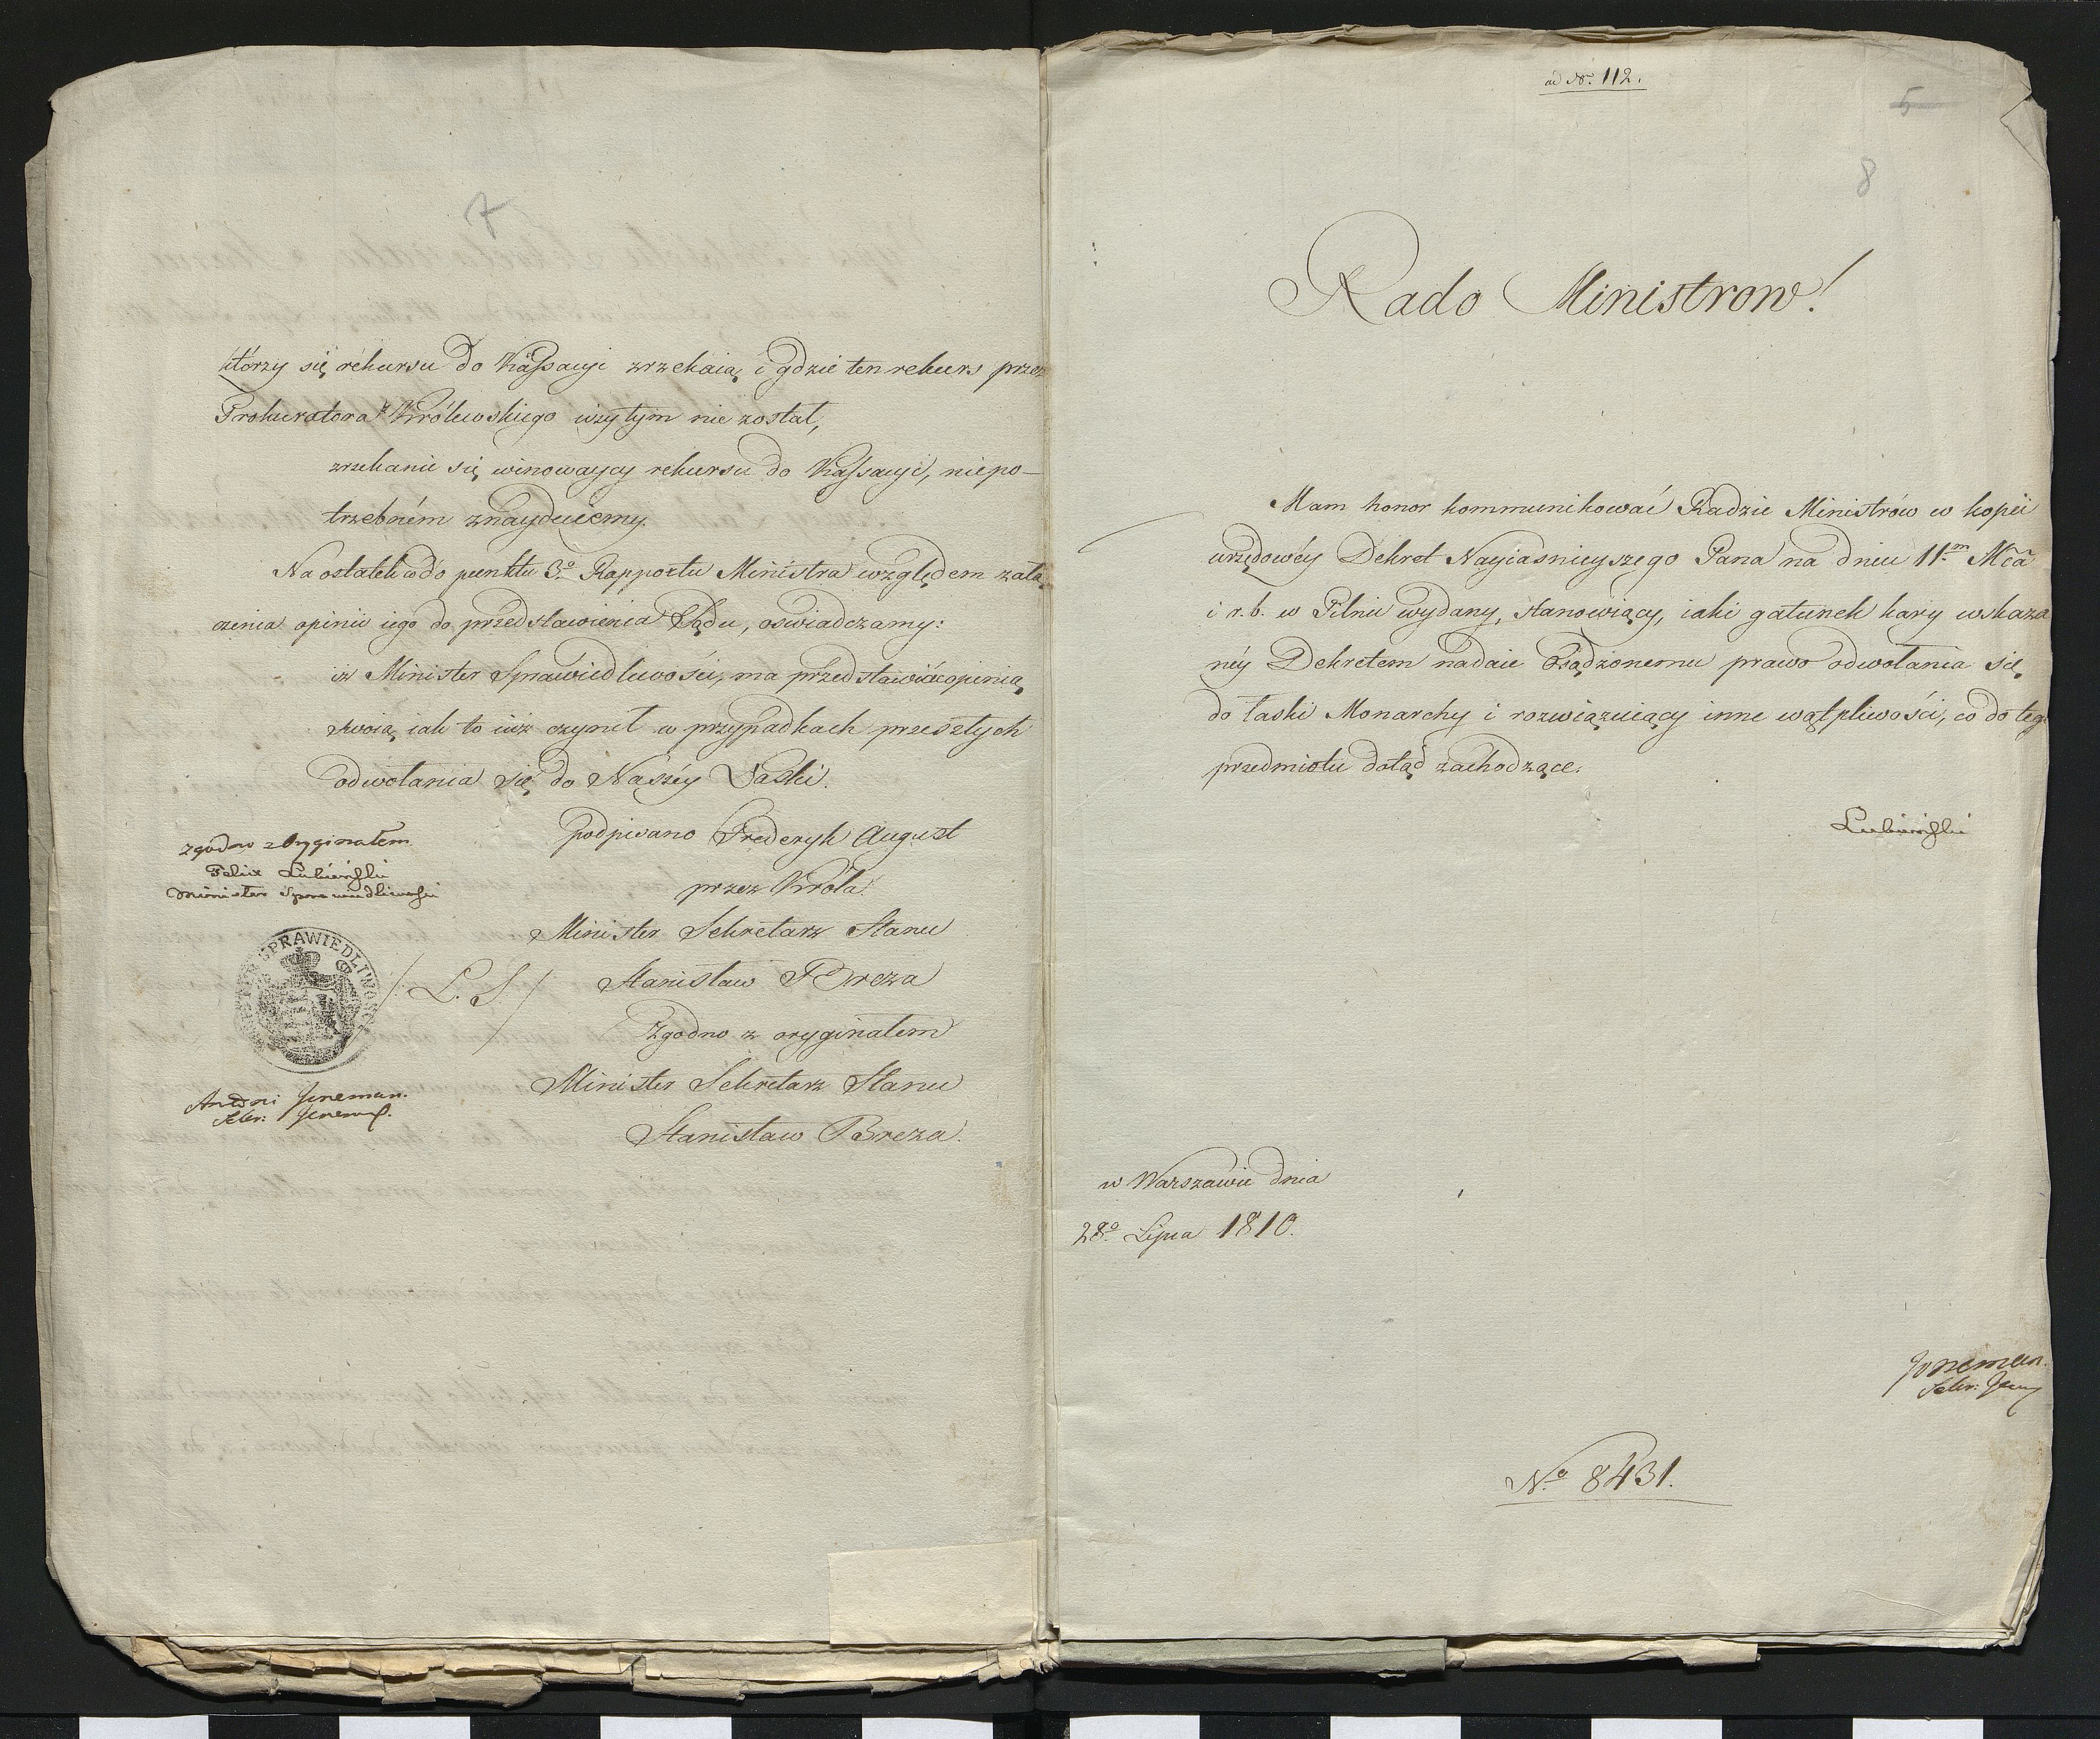 7
którzy się rekursu do Kassacyi zrzekaią, i gdzie ten rekurs przez
Prokuratora Królewskiego użytym nie został,
zrzekanie się winowaycy rekursu do Kassacyi, niepo-
trzebném znayduiemy.
Na ostatek co do punktu 3º. Rapportu Ministra względem załą
czenia opinii iego do przedstawienia Sądu, oświadczamy:
iż Minister Sprawiedliwości, ma przedstawić opinią
swoią, iak to iuż czynił w przypadkach przeszłych
odwołania się do Naszéy Łaski.
podpisano Fryderyk August
przez Króla.
Minister Sekretarz Stanu
/: L. S. /
Stanisław Breza
Zgodno z oryginałem
Minister Sekretarz Stanu
Stanisław Breza.
zgodno z Oryginałem
Felix Łubieński
Minister Sprawiedliwości
SPRAWIEDLIWOŚCI
Sekr:
ad Nº. 112.
5
8
Rado Ministrow!
Mam honor kommunikować Radzie Ministrów w kopii
urzędowéy Dekret Nayiaśnieyszego Pana na dniu 11.m Mca
i r. b. w Pilnie wydany, stanowiący, iaki gatunek kary wskaza
néy Dekretem nadaie Osądzonemu prawo odwołania się
do łaski Monarchy i rozwiązuiący inne wątpliwości, co do tego
przedmiotu dotąd zachodzące.
Łubieński
w Warszawie dnia
28º. Lipca 1810.
Sekr:
Nº. 8431.